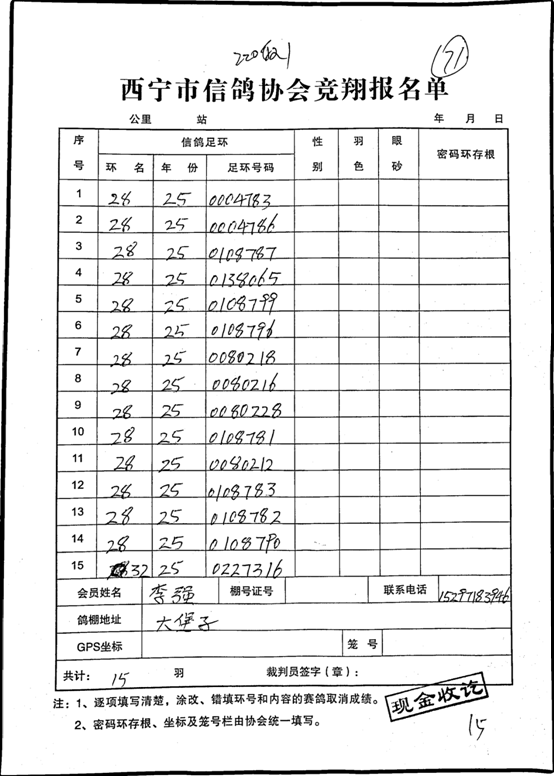 220(双)
171
西宁市信鸽协会竞翔报名单
公里 站 年 月 日
序号 信鸽足环 性别 羽色 眼砂 密码环存根
环 名 年 份 足环号码
1 28 25 0004783
2 28 25 0004786
3 28 25 0108787
4 28 25 0138065
5 28 25 0108799
6 28 25 0108796
7 28 25 0080218
8 28 25 0080216
9 28 25 0080228
10 28 25 0108781
11 28 25 0080212
12 28 25 0108783
13 28 25 0108782
14 28 25 0108790
15 32 25 0227316
会员姓名 李强 棚号证号 联系电话 15297183946
鸽棚地址 大堡子
GPS坐标 笼 号
共计: 15 羽 裁判员签字(章):
注:1、逐项填写清楚,涂改、错填环号和内容的赛鸽取消成绩。
现金收讫
2、密码环存根、坐标及笼号栏由协会统一填写。
15